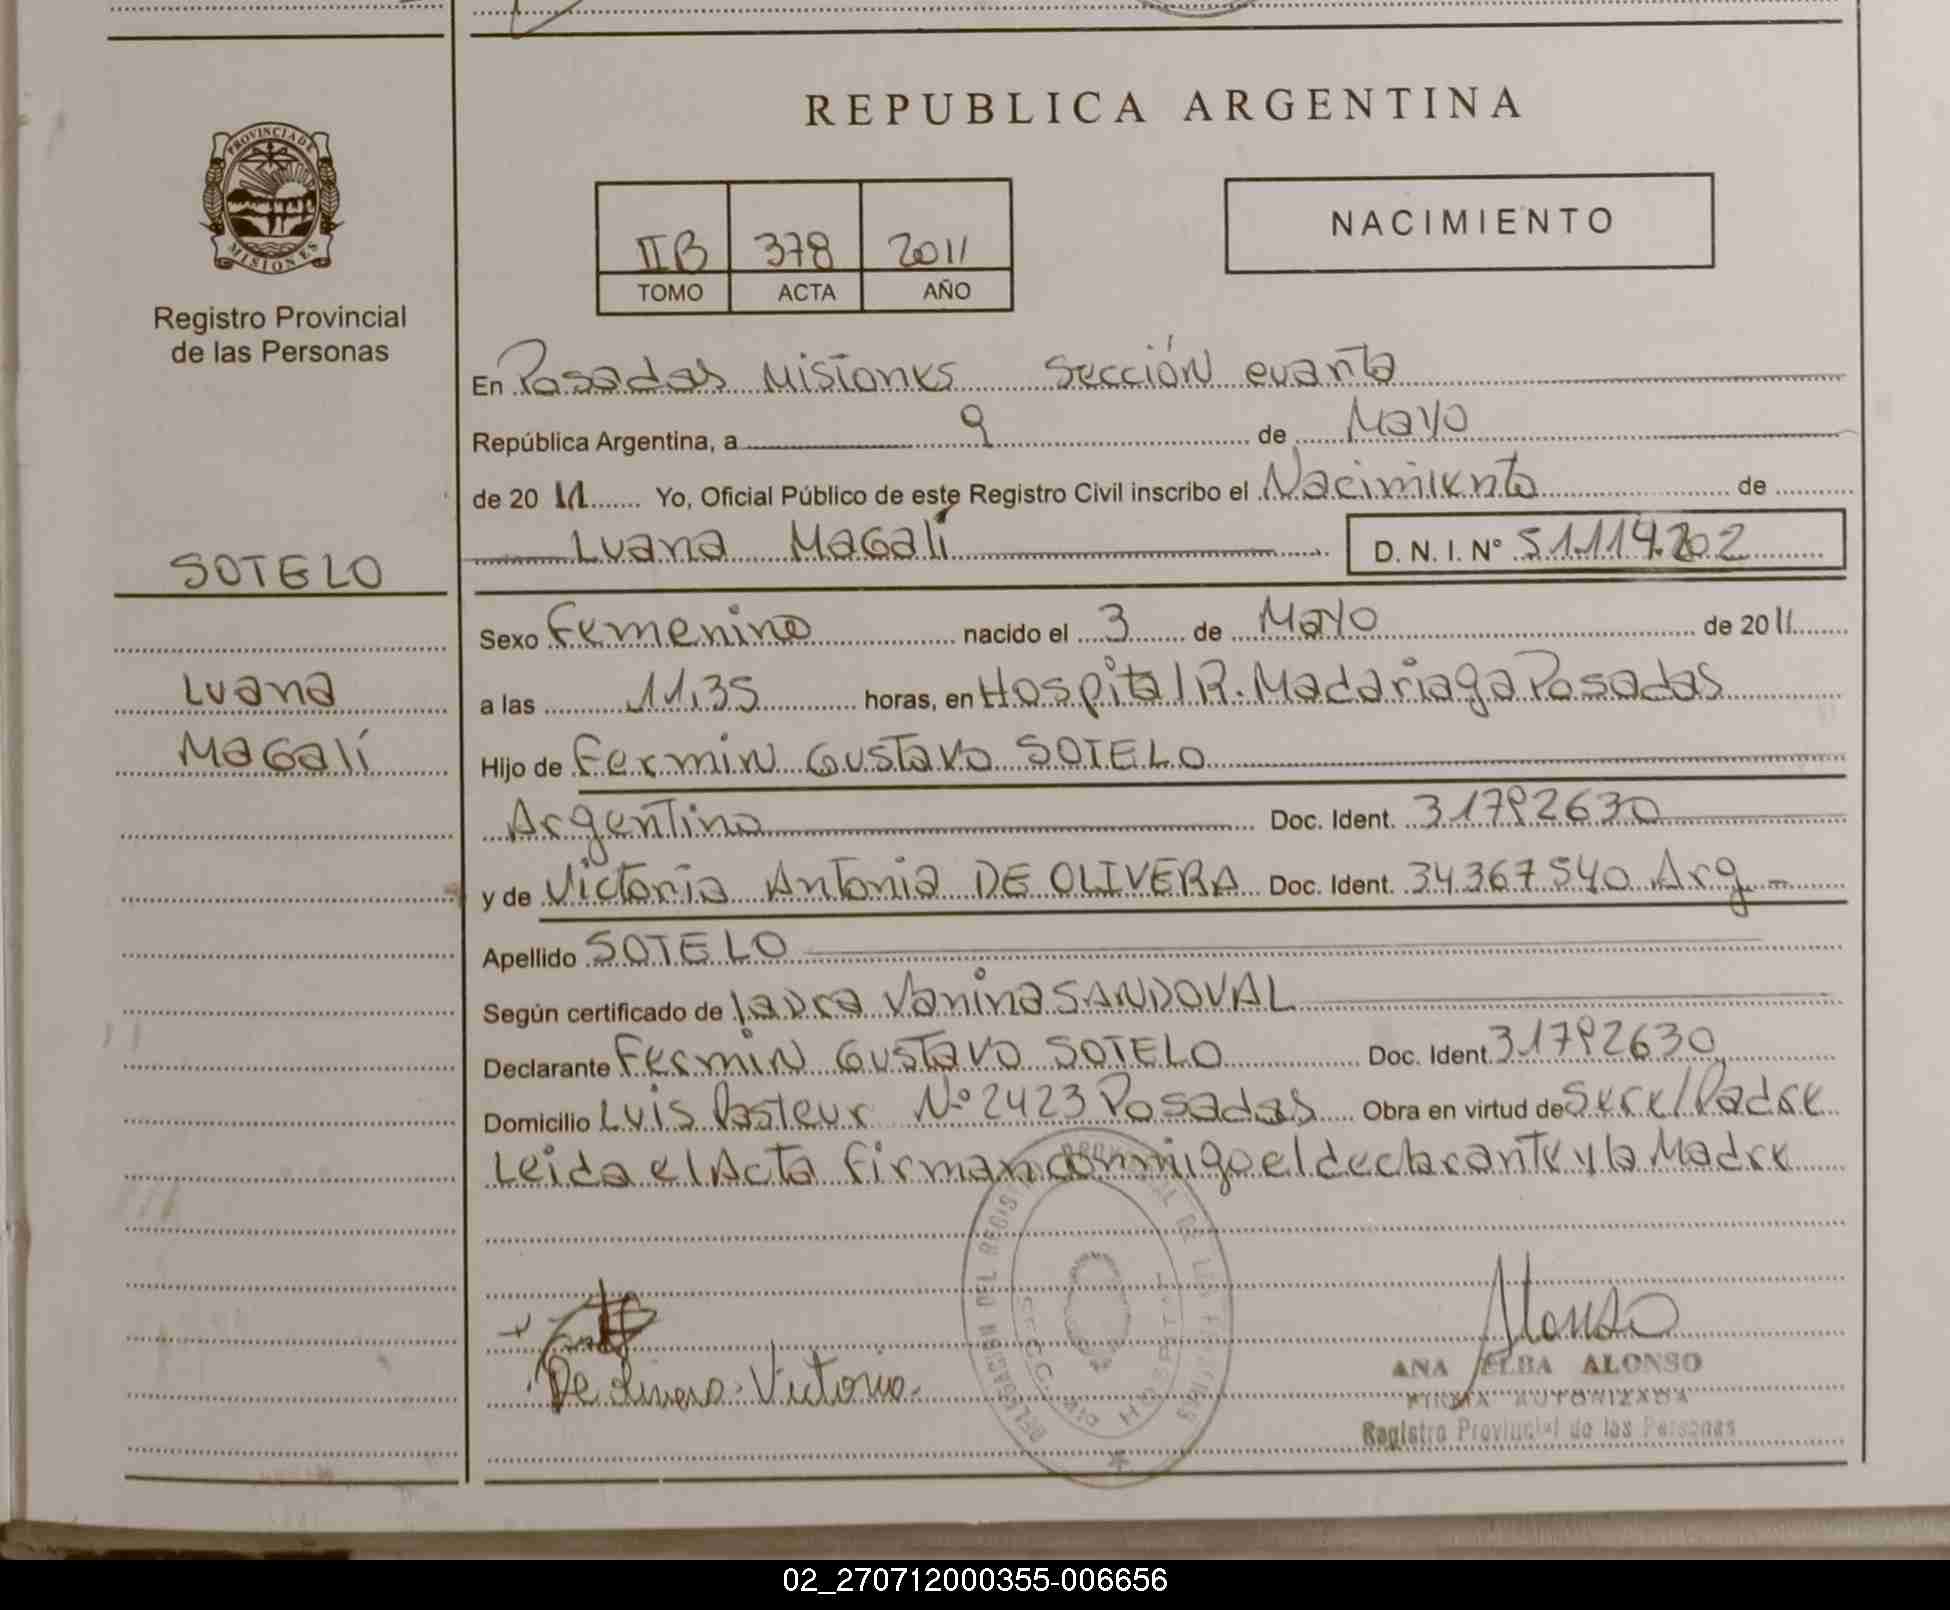 REPUBLICA ARGENTINA
PROVINCIA DE
MISIONES
Registro Provincial
de las Personas
IIB 378 2011
TOMO ACTA AÑO
NACIMIENTO
En Posadas Misiones Sección cuarta
República Argentina, a 9 de Mayo
de 2011 Yo, Oficial Público de este Registro Civil inscribo el Nacimiento de
Luana Magalí D. N. I. N° 51.114.202
SOTELO
Luana
Magalí
Sexo Femenino nacido el 3 de Mayo de 2011
a las 11,35 horas, en Hospital R. Madariaga Posadas
Hijo de Fermin Gustavo SOTELO
Argentino Doc. Ident. 31792630
y de Victoria Antonia DE OLIVERA Doc. Ident. 34367540 Arg.-
Apellido SOTELO
Según certificado de Laura Vanina SANDOVAL
Declarante Fermin Gustavo SOTELO Doc. Ident. 31792630
Domicilio Luis Pasteur N° 2423 Posadas Obra en virtud de Ser el Padre
Leida el Acta firman conmigo el declarante y la Madre
De Olivera Victoria
Alonso
ANA ELBA ALONSO
FIRMA AUTORIZADA
Registro Provincial de las Personas
02_270712000355-006656